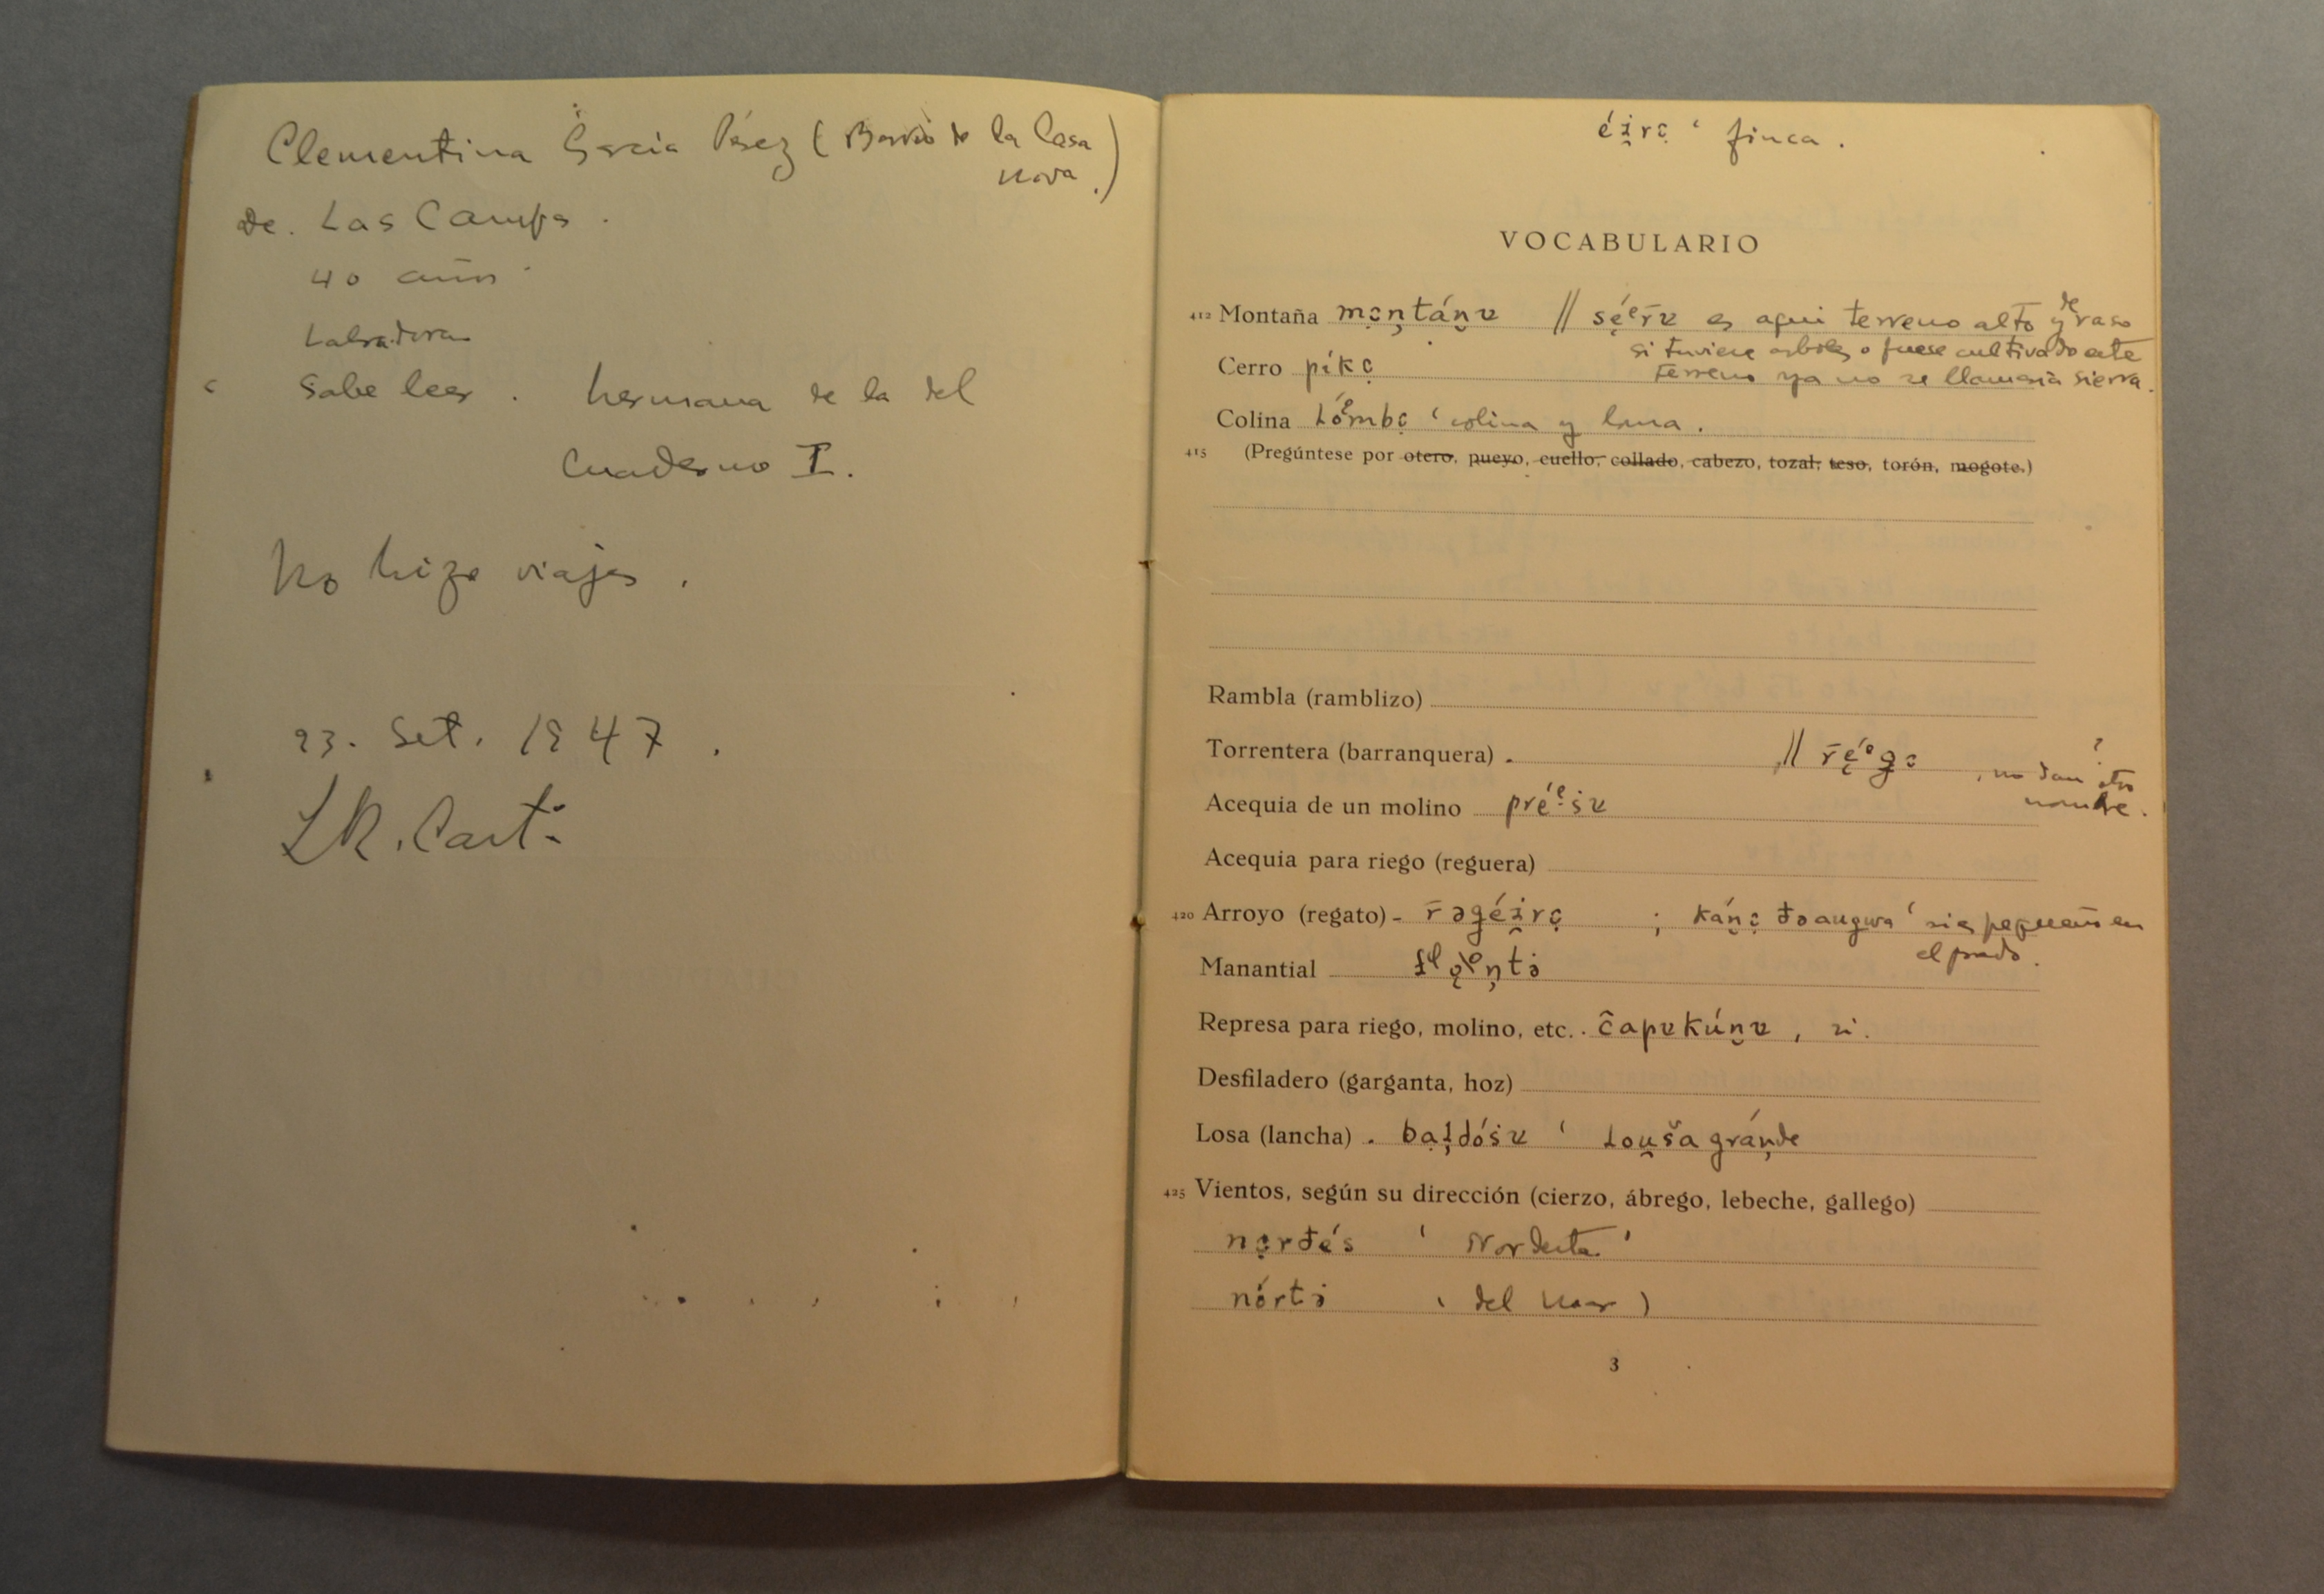 Clementina García Pérez (Barrio de la Casa
nova.)
de. Las Campas.
40 años
Labradora
Sabe leer. hermana de la del
Cuaderno I.
No hizo viajes.
23. Set. 1947.
L R. Cast
éi̯rǫ ' finca.
VOCABULARIO
412 Montaña mǫn̦táṉɐ // sę́ᵉr̄ɐ es aqui terreno alto y de raso
si tuviese arboles o fuese cultivado este
terreno ya no se llamaria sierra.
Cerro píkǫ
Colina lómbǫ ' colina y loma.
415 (Pregúntese por otero, pueyo, cuello, collado, cabezo, tozal, teso, torón, mogote.)
Rambla (ramblizo)
Torrentera (barranquera) . // r̄ę́ᵉgǫ , no dan otro
nombre.
Acequia de un molino préᵉṡɐ
Acequia para riego (reguera)
420 Arroyo (regato) - r̄əgéi̯rǫ ; káṉǫ đə au̯gwa ' si es pequeño en
el prado.
Manantial
Represa para riego, molino, etc. . ĉapɐkúṉɐ , si.
Desfiladero (garganta, hoz)
Losa (lancha) . bal̦dóṡɐ ' lou̯s̆a grán̦de
425 Vientos, según su dirección (cierzo, ábrego, lebeche, gallego)
nǫrđés ' Nordeste '
nórtə ( del mar )
3